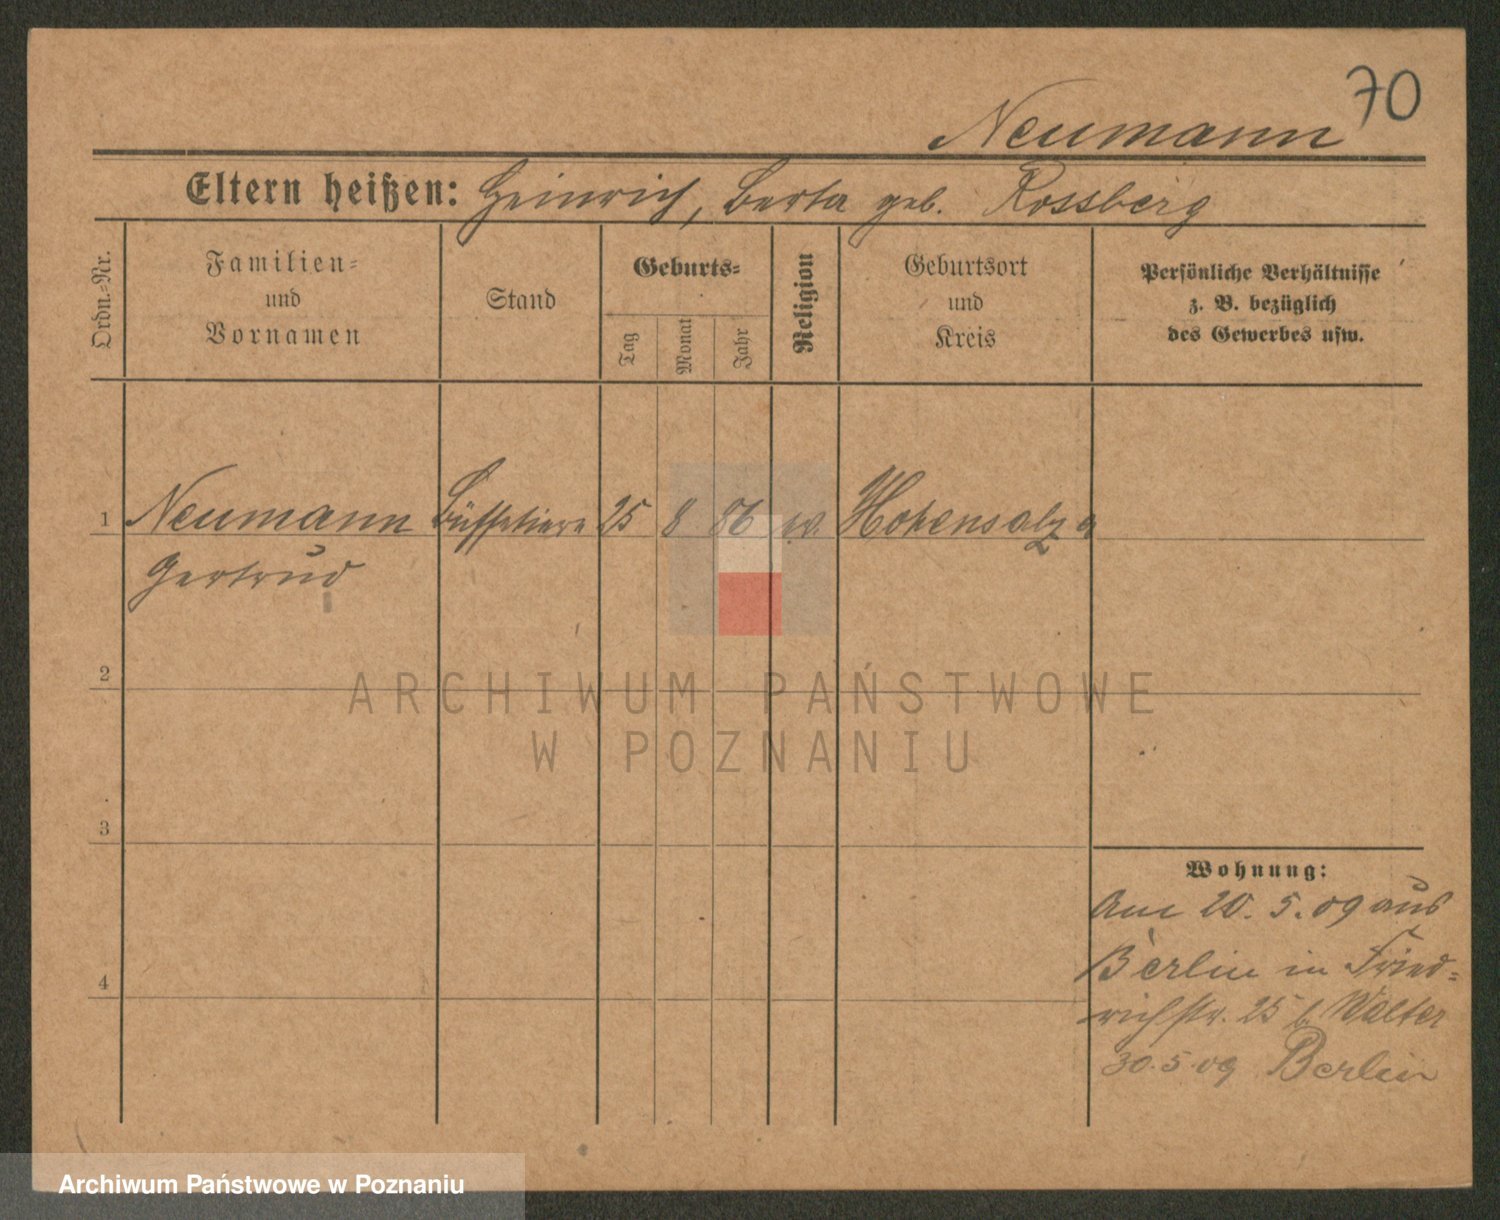 70
Neumann
Eltern heißen: Heinrich, Berta geb. Rossberg
Ordn.=Nr.
Familien=
und
Vornamen
Stand
Geburts=
Tag
Monat
Jahr
Religion
Geburtsort
und
Kreis
Persönliche Verhältnisse
z. B. bezüglich
des Gewerbes usw.
1 Neumann Büffetiere 25 8 86 ev. Hohensalza
Gertrud
2
ARCHIWUM PAŃSTWOWE
W POZNANIU
3
Wohnung:
Am 20. 5. 09 aus
Berlin in Fried=
4
richstr. 25 b. Walter
30.5.09 Berlin
Archiwum Państwowe w Poznaniu